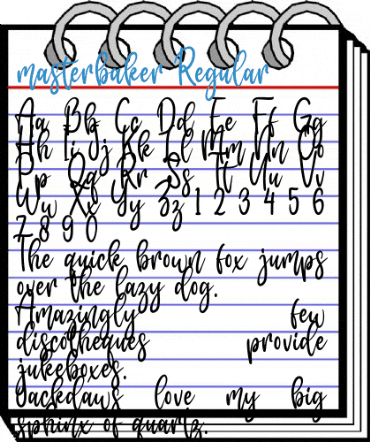 masterbaker Regular
Aa Bb Cc Dd Ee Ff Gg
Hh Ii Jj Kk Ll Mm Nn Oo
Pp Qq Rr Ss Tt Uu Vv
Ww Xx Yy Zz 1 2 3 4 5 6
7 8 9 0
The quick brown fox jumps
over the lazy dog.
Amazingly few
discotheques provide
jukeboxes.
Jackdaws love my big
sphinx of quartz.